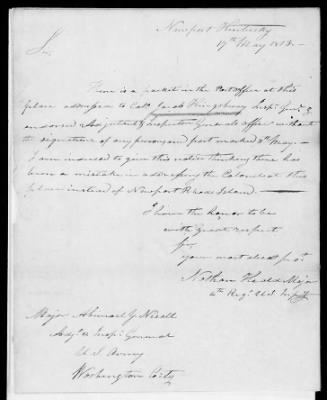 Newport Kentucky
17th May 1813.
Sir,
There is a packet in the Post office at this
place addressed to Colo. Jacob Kingsbury Insp. Genl. &
endorsed Adjutant & Inspector Generals office without
the signature of any person and post marked 3d May
I am induced to give this notice thinking there has
been a mistake in addressing the Colonel at this
place instead of Newport Rhode Island.
I have the honor to be
with great respect
Sir,
your most obedt. St.
Nathan Heald Major
4th Regt. U.S. Infy.
Major Abimael Y. Nicoll
Adjt. & Insp. General
U.S. Army
Washington City